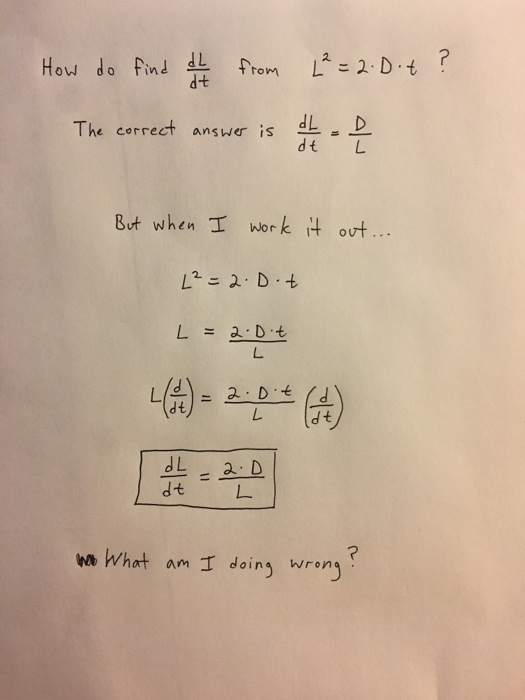 How do find dL/dt from L² = 2·D·t ?
The correct answer is dL/dt = D/L
But when I work it out...
L² = 2·D·t
L = 2·D·t/L
L(d/dt) = 2·D·t/L (d/dt)
dL/dt = 2·D/L
What am I doing wrong?